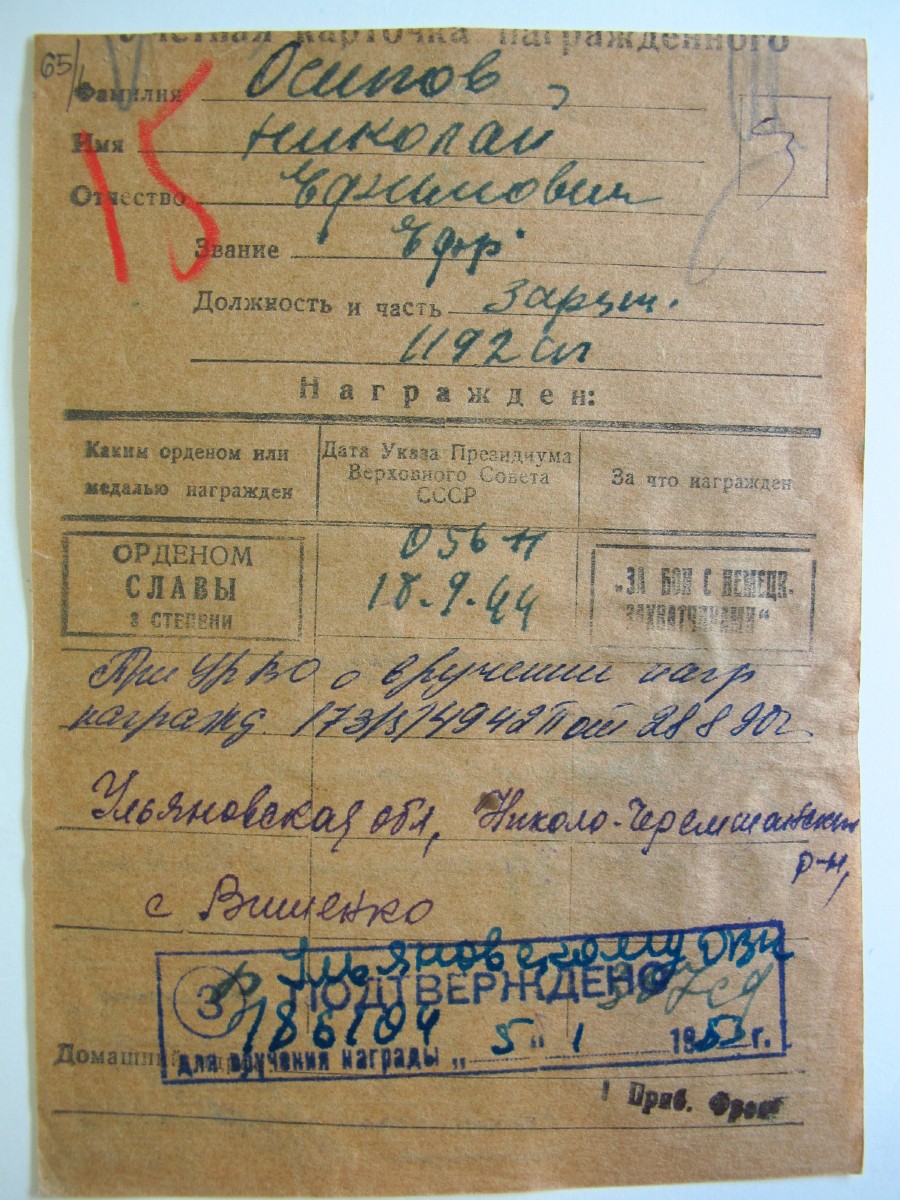 Учетная карточка награжденного
65/
15
Фамилия Осипов
3
Имя Николай
Отчество Ефимович
Звание Ефр
Должность и часть Заряж.
1192 сп
Награжден:
Каким орденом или медалью награжден
Дата Указа Президиума Верховного Совета СССР
За что награжден
ОРДЕНОМ СЛАВЫ 3 СТЕПЕНИ
056 н
18.9.44
„ЗА БОИ С НЕМЕЦК. ЗАХВАТЧИКАМИ“
о вручении нагр
награжд. от 28 8
Ульяновская обл, Николо-Черемшанский
р-н,
с Вишенко
Ульяновскому ОВК
3 ПОДТВЕРЖДЕНО
186104 „ 5 “ 1 1953 г.
для вручения награды
Домашний
1 Приб. Фронт